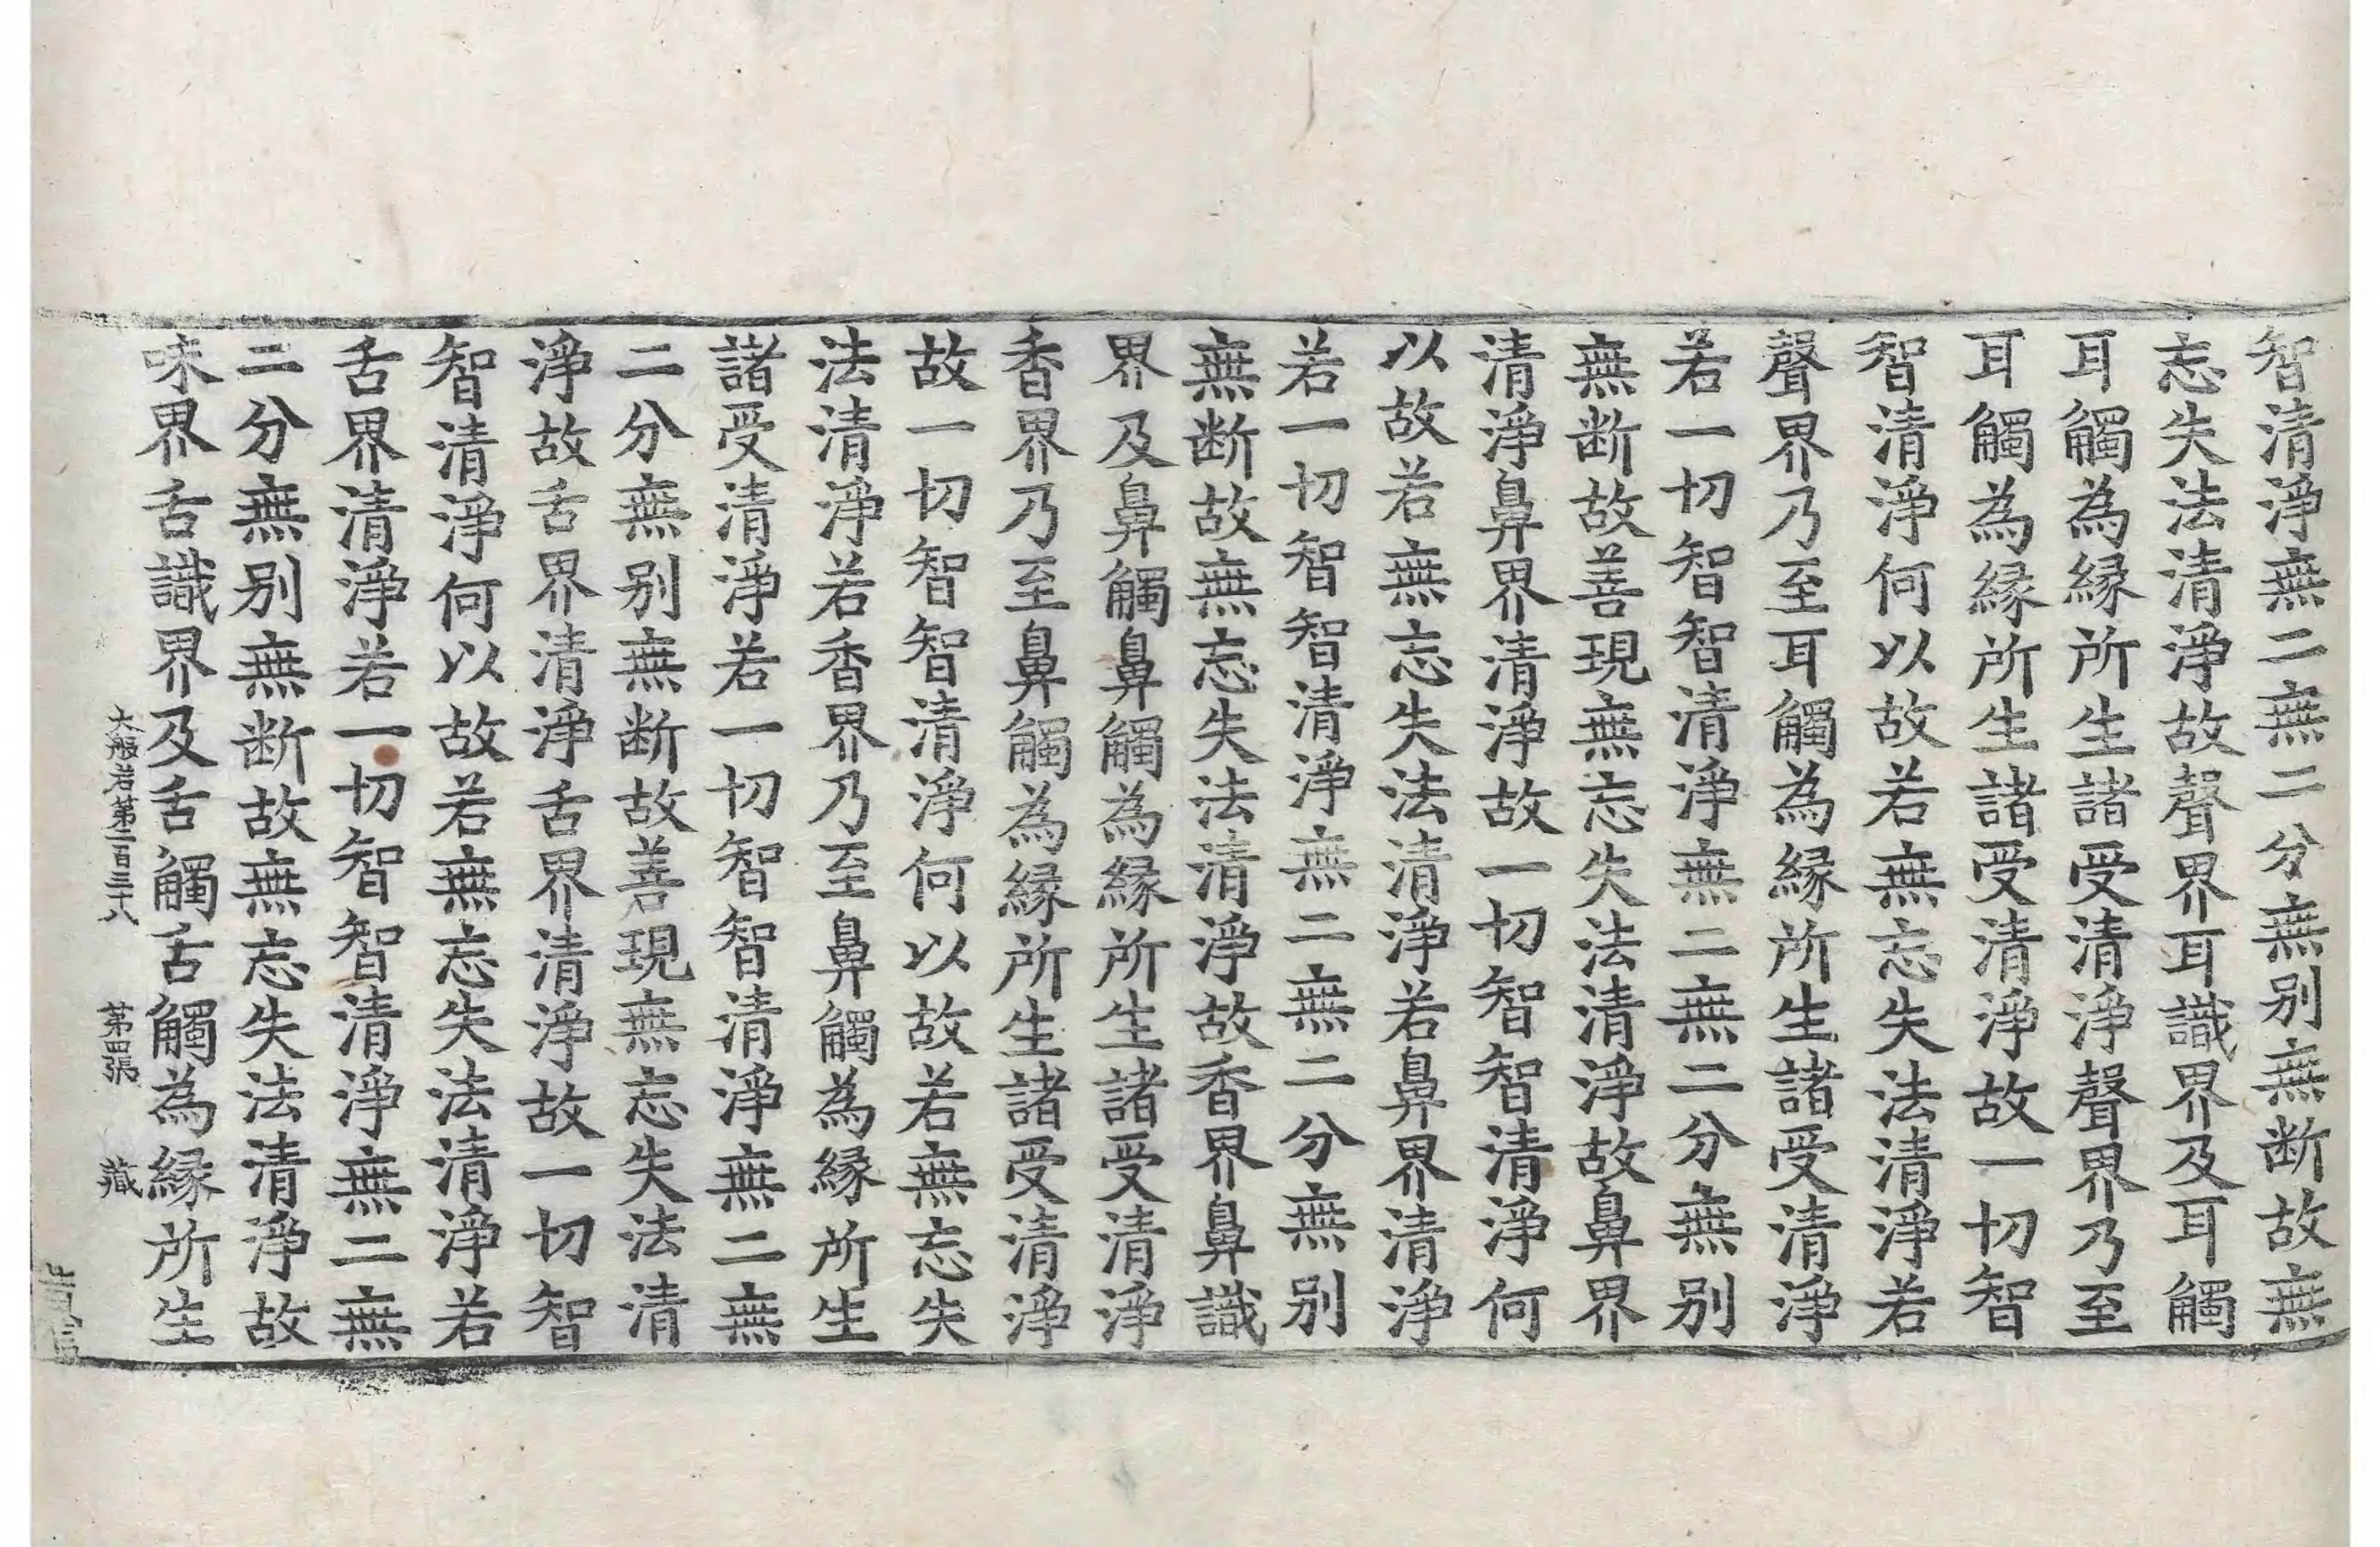 智清淨無二無二分無别無断故無
忘失法清淨故聲界耳識界及耳觸
耳觸為緣所生諸受清淨聲界乃至
耳觸為緣所生諸受清淨故一切智
智清淨何以故若無忘失法清淨若
聲界乃至耳觸為緣所生諸受清淨
若一切智智清淨無二無二分無别
無断故善現無忘失法清淨故鼻界
清淨鼻界清淨故一切智智清淨何
以故若無忘失法清淨若鼻界清淨
若一切智智清淨無二無二分無别
無断故無忘失法清淨故香界鼻識
界及鼻觸鼻觸為緣所生諸受清淨
香界乃至鼻觸為緣所生諸受清淨
故一切智智清淨何以故若無忘失
法清淨若香界乃至鼻觸為緣所生
諸受清淨若一切智智清淨無二無
二分無别無断故善現無忘失法清
淨故舌界清淨舌界清淨故一切智
智清淨何以故若無忘失法清淨若
舌界清淨若一切智智清淨無二無
二分無别無断故無忘失法清淨故
味界舌識界及舌觸舌觸為緣所生
大般若第二百三十八 第四張 藏